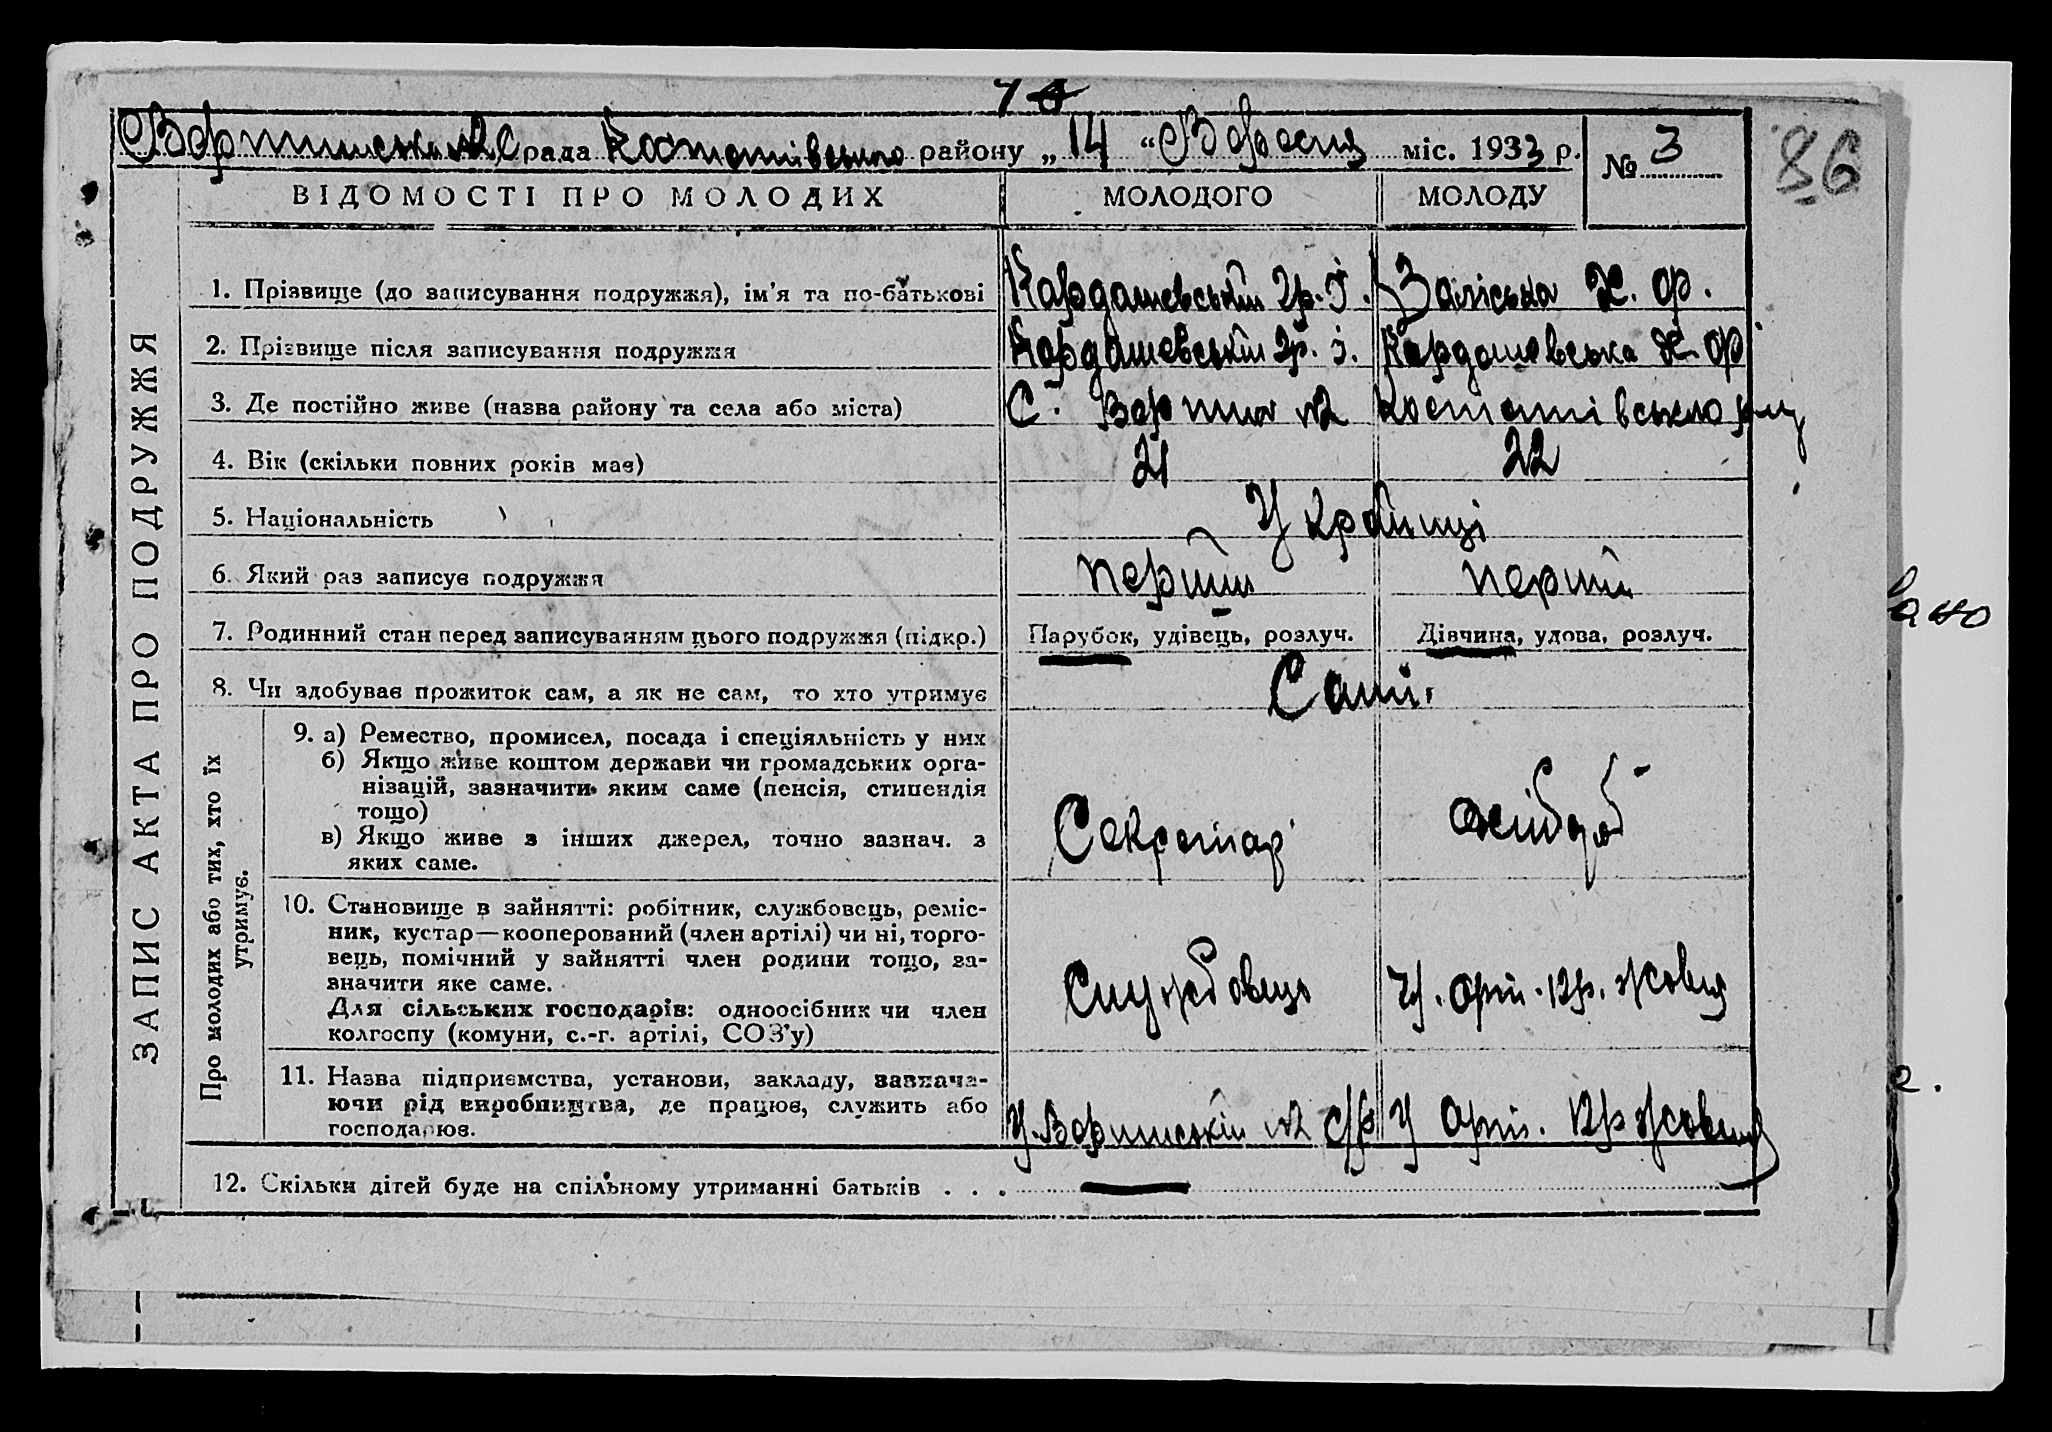 7
Вортинська №2 С рада Костянтівського району „ 14 “ Вересня міс. 1933 р. № 3
86
ВІДОМОСТІ ПРО МОЛОДИХ МОЛОДОГО МОЛОДУ
ЗАПИС АКТА ПРО ПОДРУЖЖЯ
1. Прізвище (до записування подружжя), ім’я та по-батькові Кардашевський Гр. І. Заліська Ж. Ф.
2. Прізвище після записування подружжя Кардашевський Гр. І. Кардашевська Ж. Ф
3. Де постійно живе (назва району та села або міста) С. №2
4. Вік (скільки повних років має) 21 22
5. Національність Українці
6. Який раз записує подружжя перший перший
7. Родинний стан перед записуванням цього подружжя (підкр.) Парубок, удівець, розлуч. Дівчина, удова, розлуч.
8. Чи здобуває прожиток сам, а як не сам, то хто утримує Самі.
Про молодих або тих, хто їх
утримує.
9. а) Ремество, промисел, посада і спеціяльність у них
б) Якщо живе коштом держави чи громадських орга-
нізацій, зазначити яким саме (пенсія, стипендія
тощо)
в) Якщо живе з інших джерел, точно зазнач. з
яких саме.
Секретар
10. Становище в зайнятті: робітник, службовець, реміс-
ник, кустар—кооперований (член артілі) чи ні, торго-
вець, помічний у зайнятті член родини тощо, за-
значити яке саме.
Для сільських господарів: одноосібник чи член
колгоспу (комуни, с.-г. артілі, СОЗ’у)
Службовець Жовтня
11. Назва підприємства, установи, закладу, зазнача-
ючи рід виробництва, де працює, служить або
господарює.
У №2 с/р У Арт. Жовтня
12. Скільки дітей буде на спільному утриманні батьків . . .